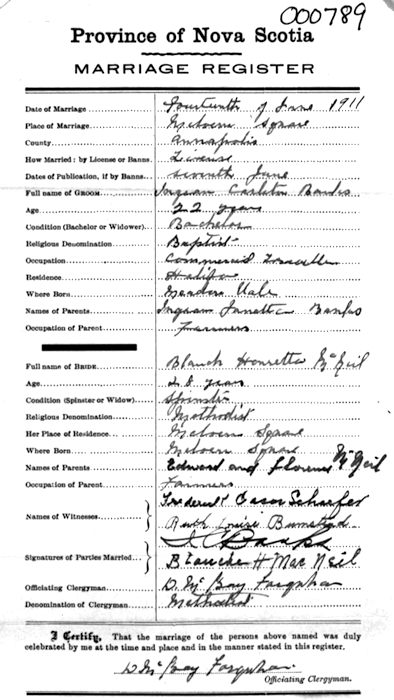 000789
Province of Nova Scotia
MARRIAGE REGISTER
Date of Marriage Fourteenth of June 1911
Place of Marriage Melvern Square
County Annapolis
How Married: by License or Banns License
Dates of Publication, if by Banns seventh June
Full name of GROOM Ingram Carleton Banks
Age 22 years
Condition (Bachelor or Widower) Bachelor
Religious Denomination Baptist
Occupation Commercial Traveller
Residence Halifax
Where Born Meadow Vale
Names of Parents Ingram Banks
Occupation of Parent Farmers
Full name of BRIDE Blanch Henretta McNeil
Age 28 years
Condition (Spinster or Widow) Spinster
Religious Denomination Methodist
Her Place of Residence Melvern Square
Where Born Melvern Square
Names of Parents Edward and Florence McNeil
Occupation of Parent Farmers
Names of Witnesses Frederick Schaefer
Ruth Louise
Signatures of Parties Married I C Banks
Blanche H MacNeil
Officiating Clergyman D. Farquhar
Denomination of Clergyman Methodist
I Certify, That the marriage of the persons above named was duly
celebrated by me at the time and place and in the manner stated in this register.
D Farquhar
Officiating Clergyman.